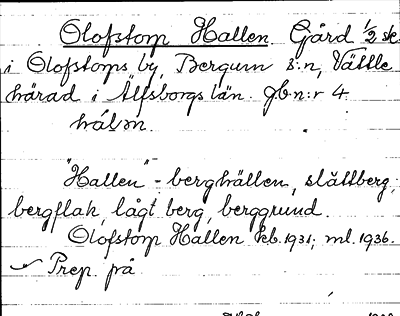 Olofstorp Hallen. Gård 1/2 sk.
i Olofstorps by, Bergum s:n, Vättle
härad i Älfsborgs län. Jb.n:r 4
"Hallen" - berghällen, slättberg,
bergflak, lågt berg, berggrund.
Olofstorp Hallen kb. 1931; ml. 1936.
Prep. på